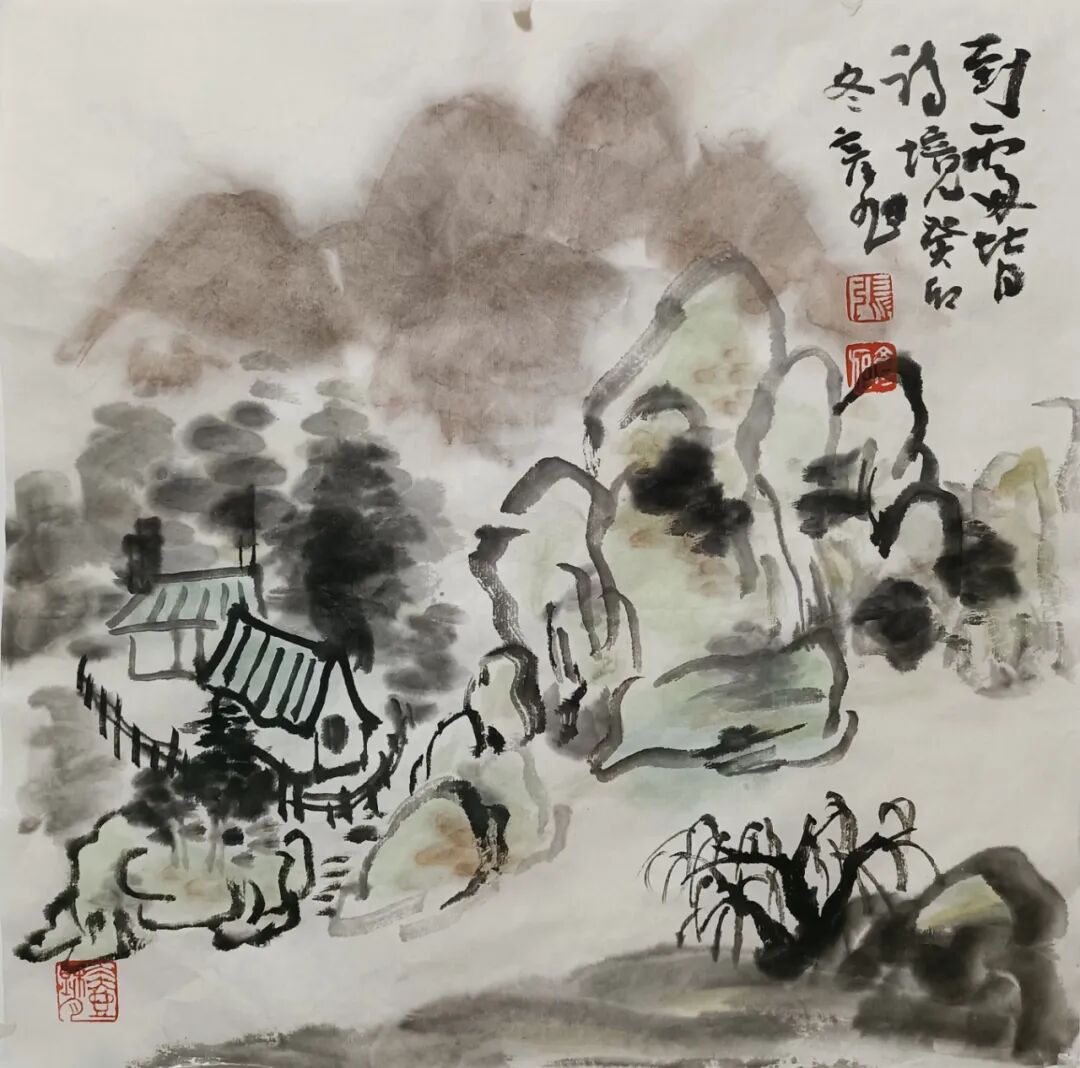 到處皆
詩境癸卯
冬彦旭
張